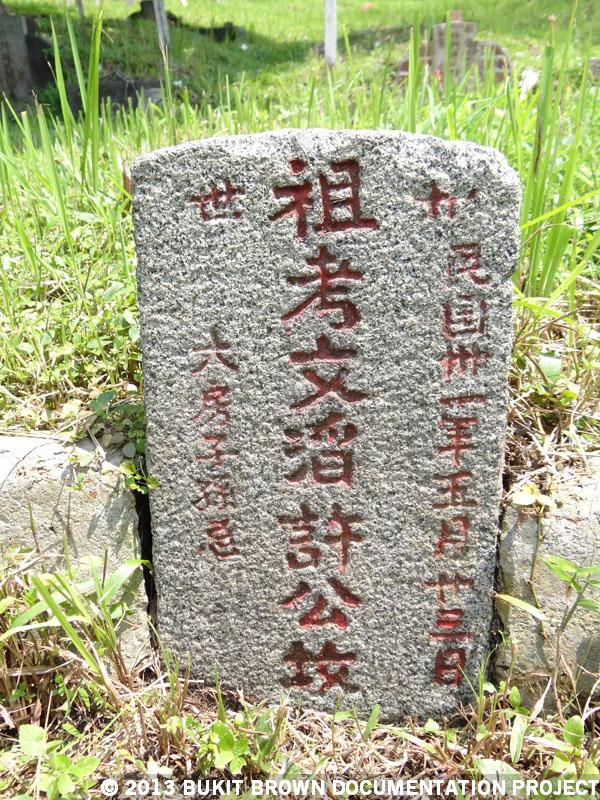 廿
民国卅一年五月廿三日
祖考文滔許公坟
世
六房子孫忌
© 2013 BUKIT BROWN DOCUMENTATION PROJECT